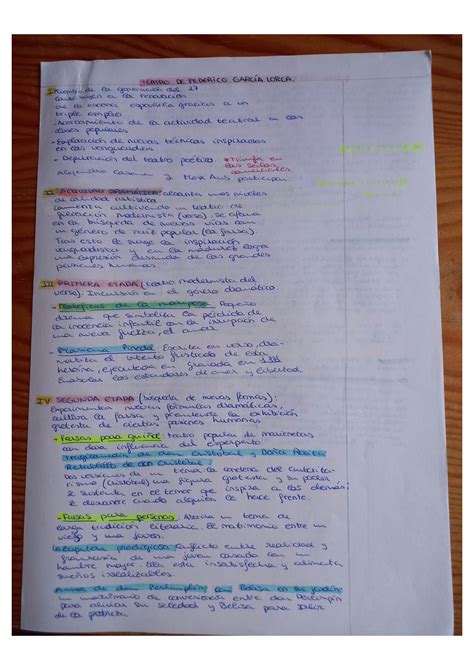 TEATRO DE FEDERICO GARCÍA LORCA.
I Miembro de la generación del 27
contribuyó a la renovación
de la escena española gracias a un
triple empeño
- Acercamiento de la actividad teatral a las
clases populares
- Exploración de nuevas técnicas inspiradas
en las vanguardias
- Depuración del teatro poético
* Triunfa en
las salas
comerciales
Alejandro Casona y Max Aub participan.
II ACTIVIDAD DRAMÁTICA: alcanza unos niveles
de calidad artística
Comienza cultivando un teatro de
filiación modernista (verso), se afana
en la búsqueda de nuevas vías con
un género de raíz popular (la farsa)
Tras esto le surge la inspiración
vanguardista y en la madurez logra
una expresión desnuda de las grandes
pasiones humanas.
III PRIMERA ETAPA (teatro modernista del
verso) Incursión en el género dramático.
- Maleficio de la mariposa: Pequeño
drama que simboliza la pérdida de
la inocencia infantil con la irrupción de
una nueva fuerza, el amor
- Mariana Pineda: Escrita en verso, dra-
matiza el intento frustado de esta
heroína, ejecutada en Granada en 1831
Enarbolar los estandartes de amor y libertad.
IV SEGUNDA ETAPA (búsqueda de nuevas formas):
Experimenta nuevas fórmulas dramáticas,
cultiva la farsa y pretende la exhibición
grotesca de ciertas pasiones humanas.
- Farsas para guiñol: teatro popular de marionetas
con clara influencia del esperpento
Tragicomedia de don Cristóbal y Doña Rosita
Retablillo de don Cristóbal
Dos versiones de un tema la condena del autorita-
rismo (Cristóbal) una figura grotesca y su poder
se sustenta en el temor que inspira a los demás;
se desmorona cuando alguien le hace frente.
- Farsas para personas: Aborda un tema de
larga tradición literaria. El matrimonio entre un
viejo y una joven.
La zapatera prodigiosa: Conflicto entre realidad y
fantasía de una joven casada con un
hombre mayor. Ella está insatisfecha y alimenta
sueños irrealizables.
Amor de don Perlimplín con Belisa en su jardín
un matrimonio de conveniencia entre don Perlimplín
para aliviar su soledad y Belisa para salir
de la pobreza